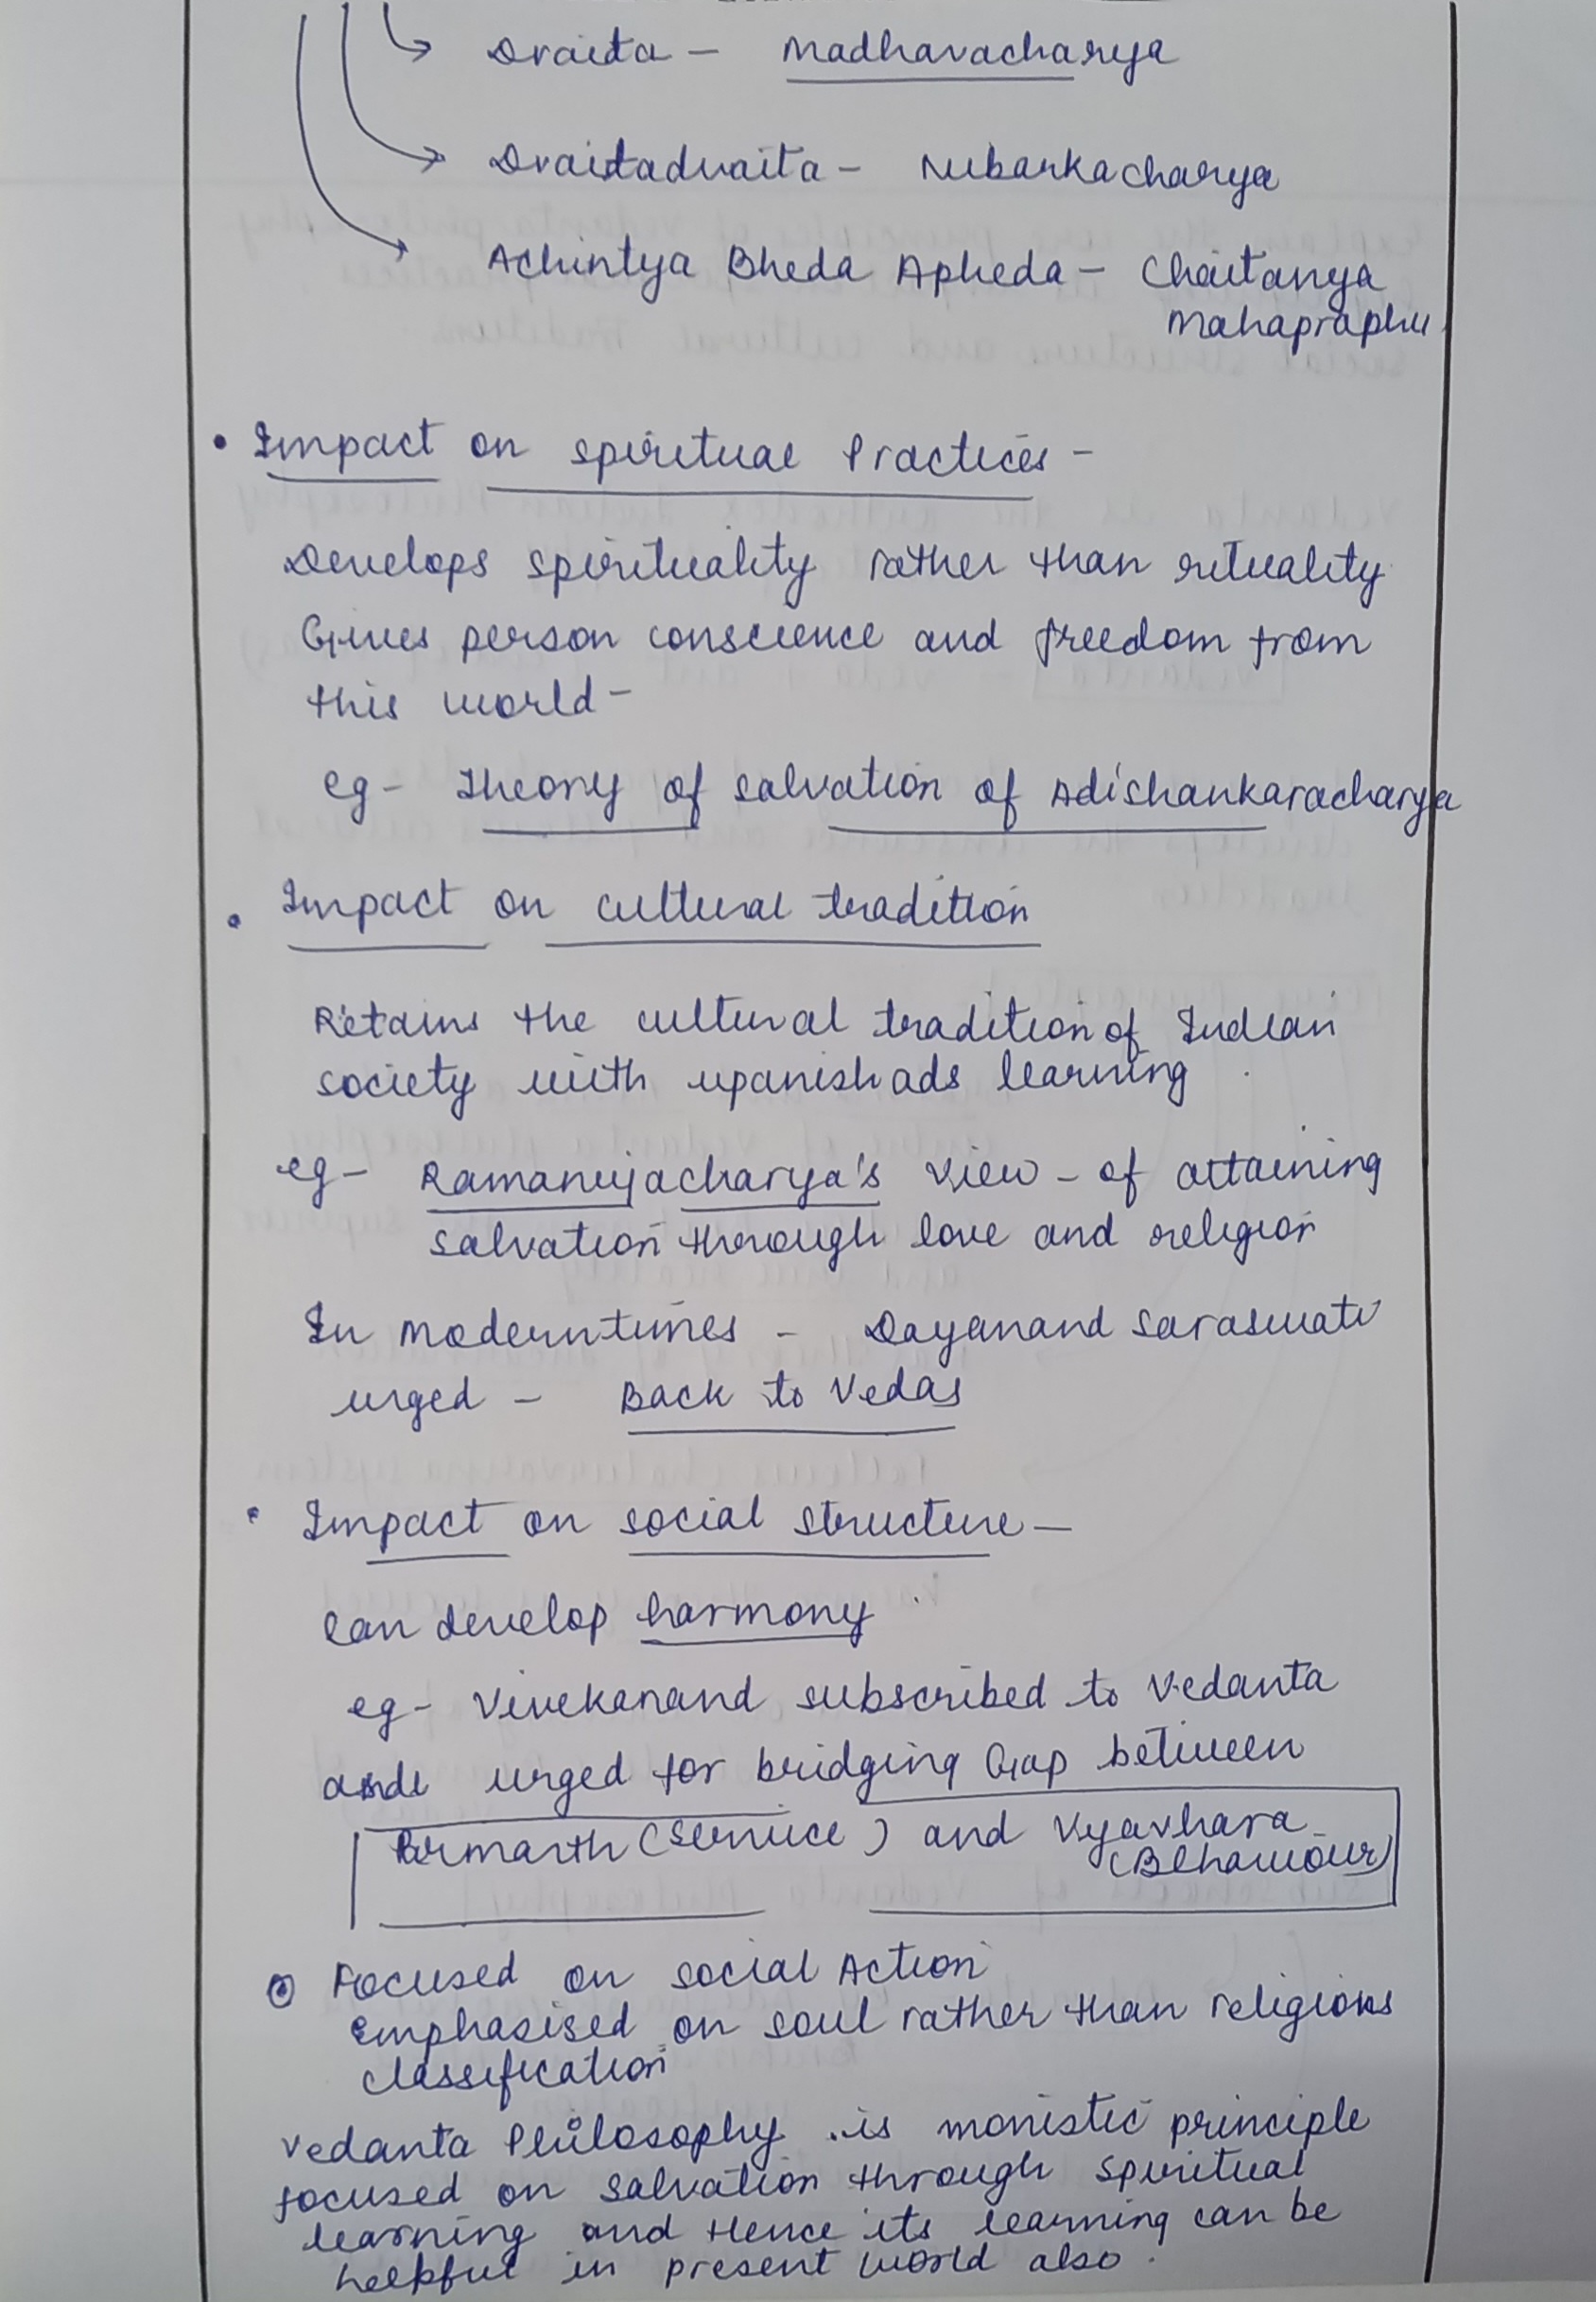 Dvaita - Madhavacharya
Dvaitadvaita - Nibarkacharya
Achintya Bheda Apheda - Chaitanya
Mahapraphu
• Impact on spiritual Practices -
Develops spirituality rather than rituality
Gives person conscience and freedom from
this world -
eg - Theory of salvation of Adishankaracharya
• Impact on cultural tradition
Retains the cultural tradition of Indian
society with upanishads learning
eg - Ramanujacharya's view - of attaining
salvation through love and religion
In modern times - Dayanand Saraswati
urged - Back to Vedas
• Impact on social structure -
Can develop harmony
eg - Vivekanand subscribed to Vedanta
and urged for bridging Gap between
Parmarth (Service) and Vyavhara
(Behaviour)
Focused on social Action
Emphasised on soul rather than religions
classification
Vedanta Philosophy is monistic principle
focused on salvation through spiritual
learning and Hence its learning can be
helpful in present world also.